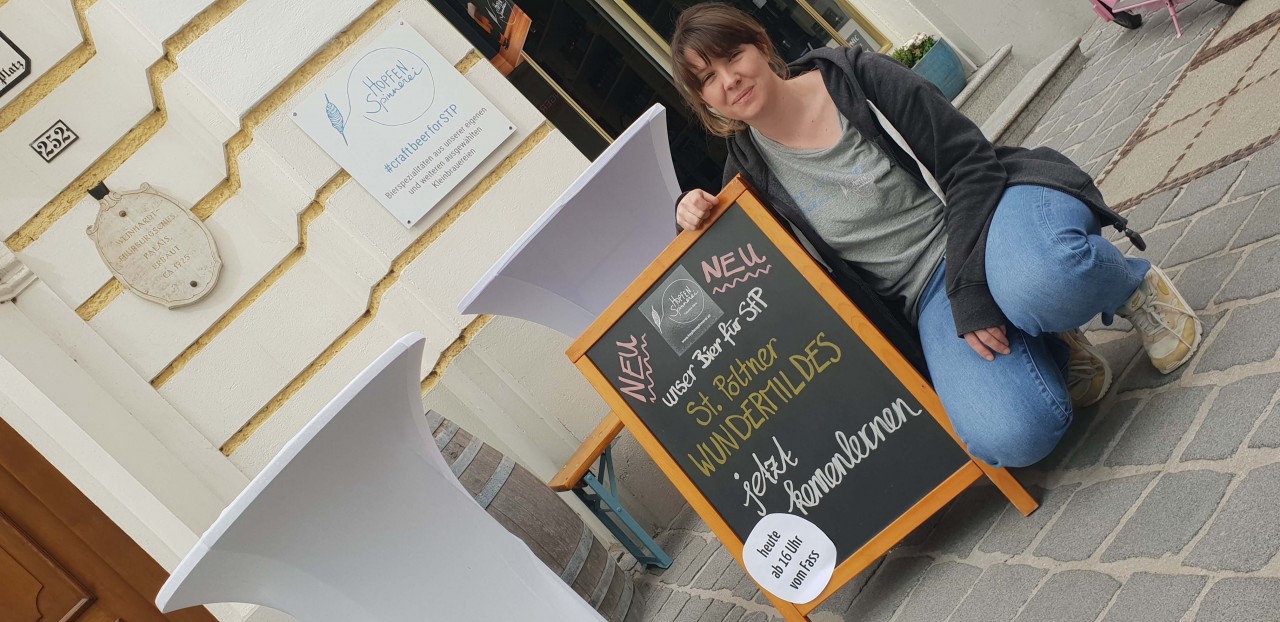 platz
252
WEINHARDT
PALAIS
ERBAUT
HOPFEN
Spinnerei
#craftbeerforSTP
Bierspezialitäten aus unserer eigenen
und weiteren ausgewählten
Kleinbrauereien
NEU
HOPFEN
Spinnerei
NEU
unser Bier für StP
St. Pöltner
WUNDERMILDES
jetzt
kennenlernen
heute
ab 16 Uhr
vom Fass